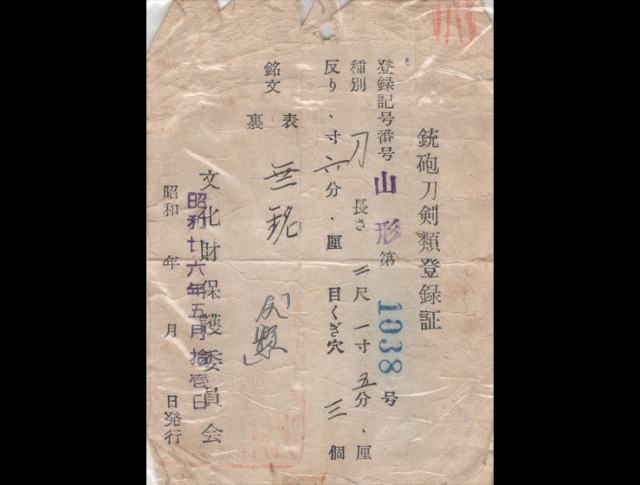 銃砲刀剣類登録証
登録記号番号 山形 第 1038 号
種別 刀 長さ 二尺 一寸 五分 、厘
反り 、寸 六分 、厘 目くぎ穴 三 個
銘文 表 無銘
裏
文化財保護委員会
昭和廿六年五月拾壹日
昭和 年 月 日発行